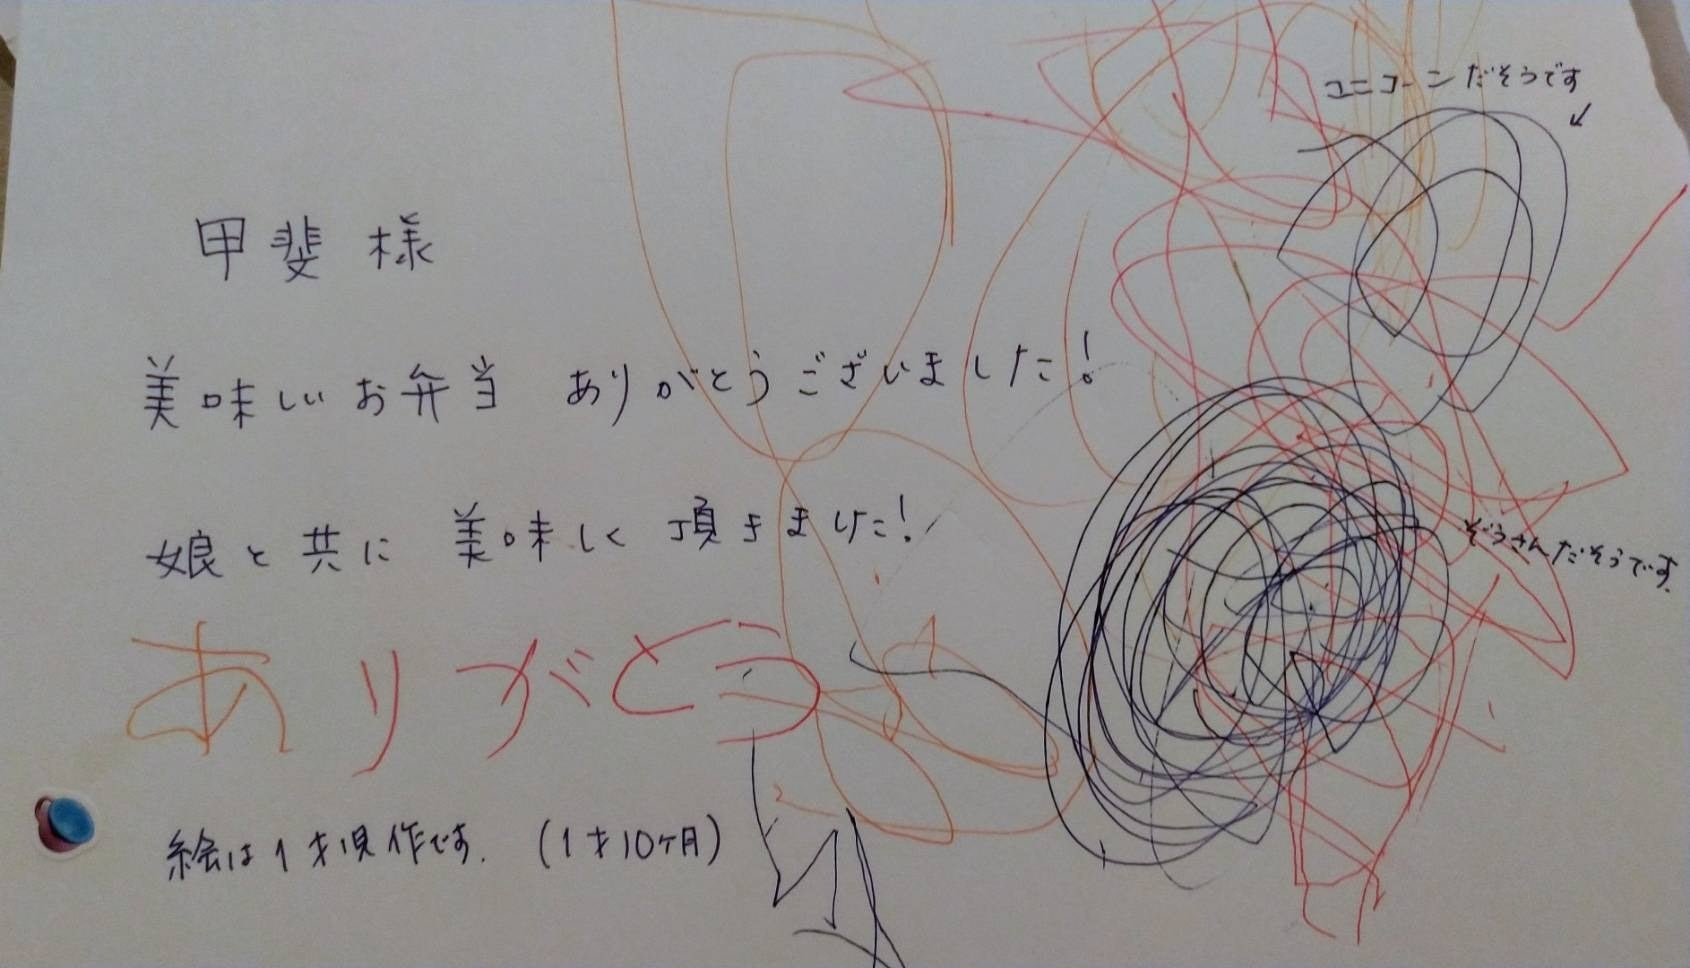 ユニコーンだそうです
甲斐様
美味しいお弁当 ありがとうございました!
娘と共に 美味しく 頂きました!
ぞうさんだそうです。
ありがとう
絵は1才児作です。(1才10ヶ月)